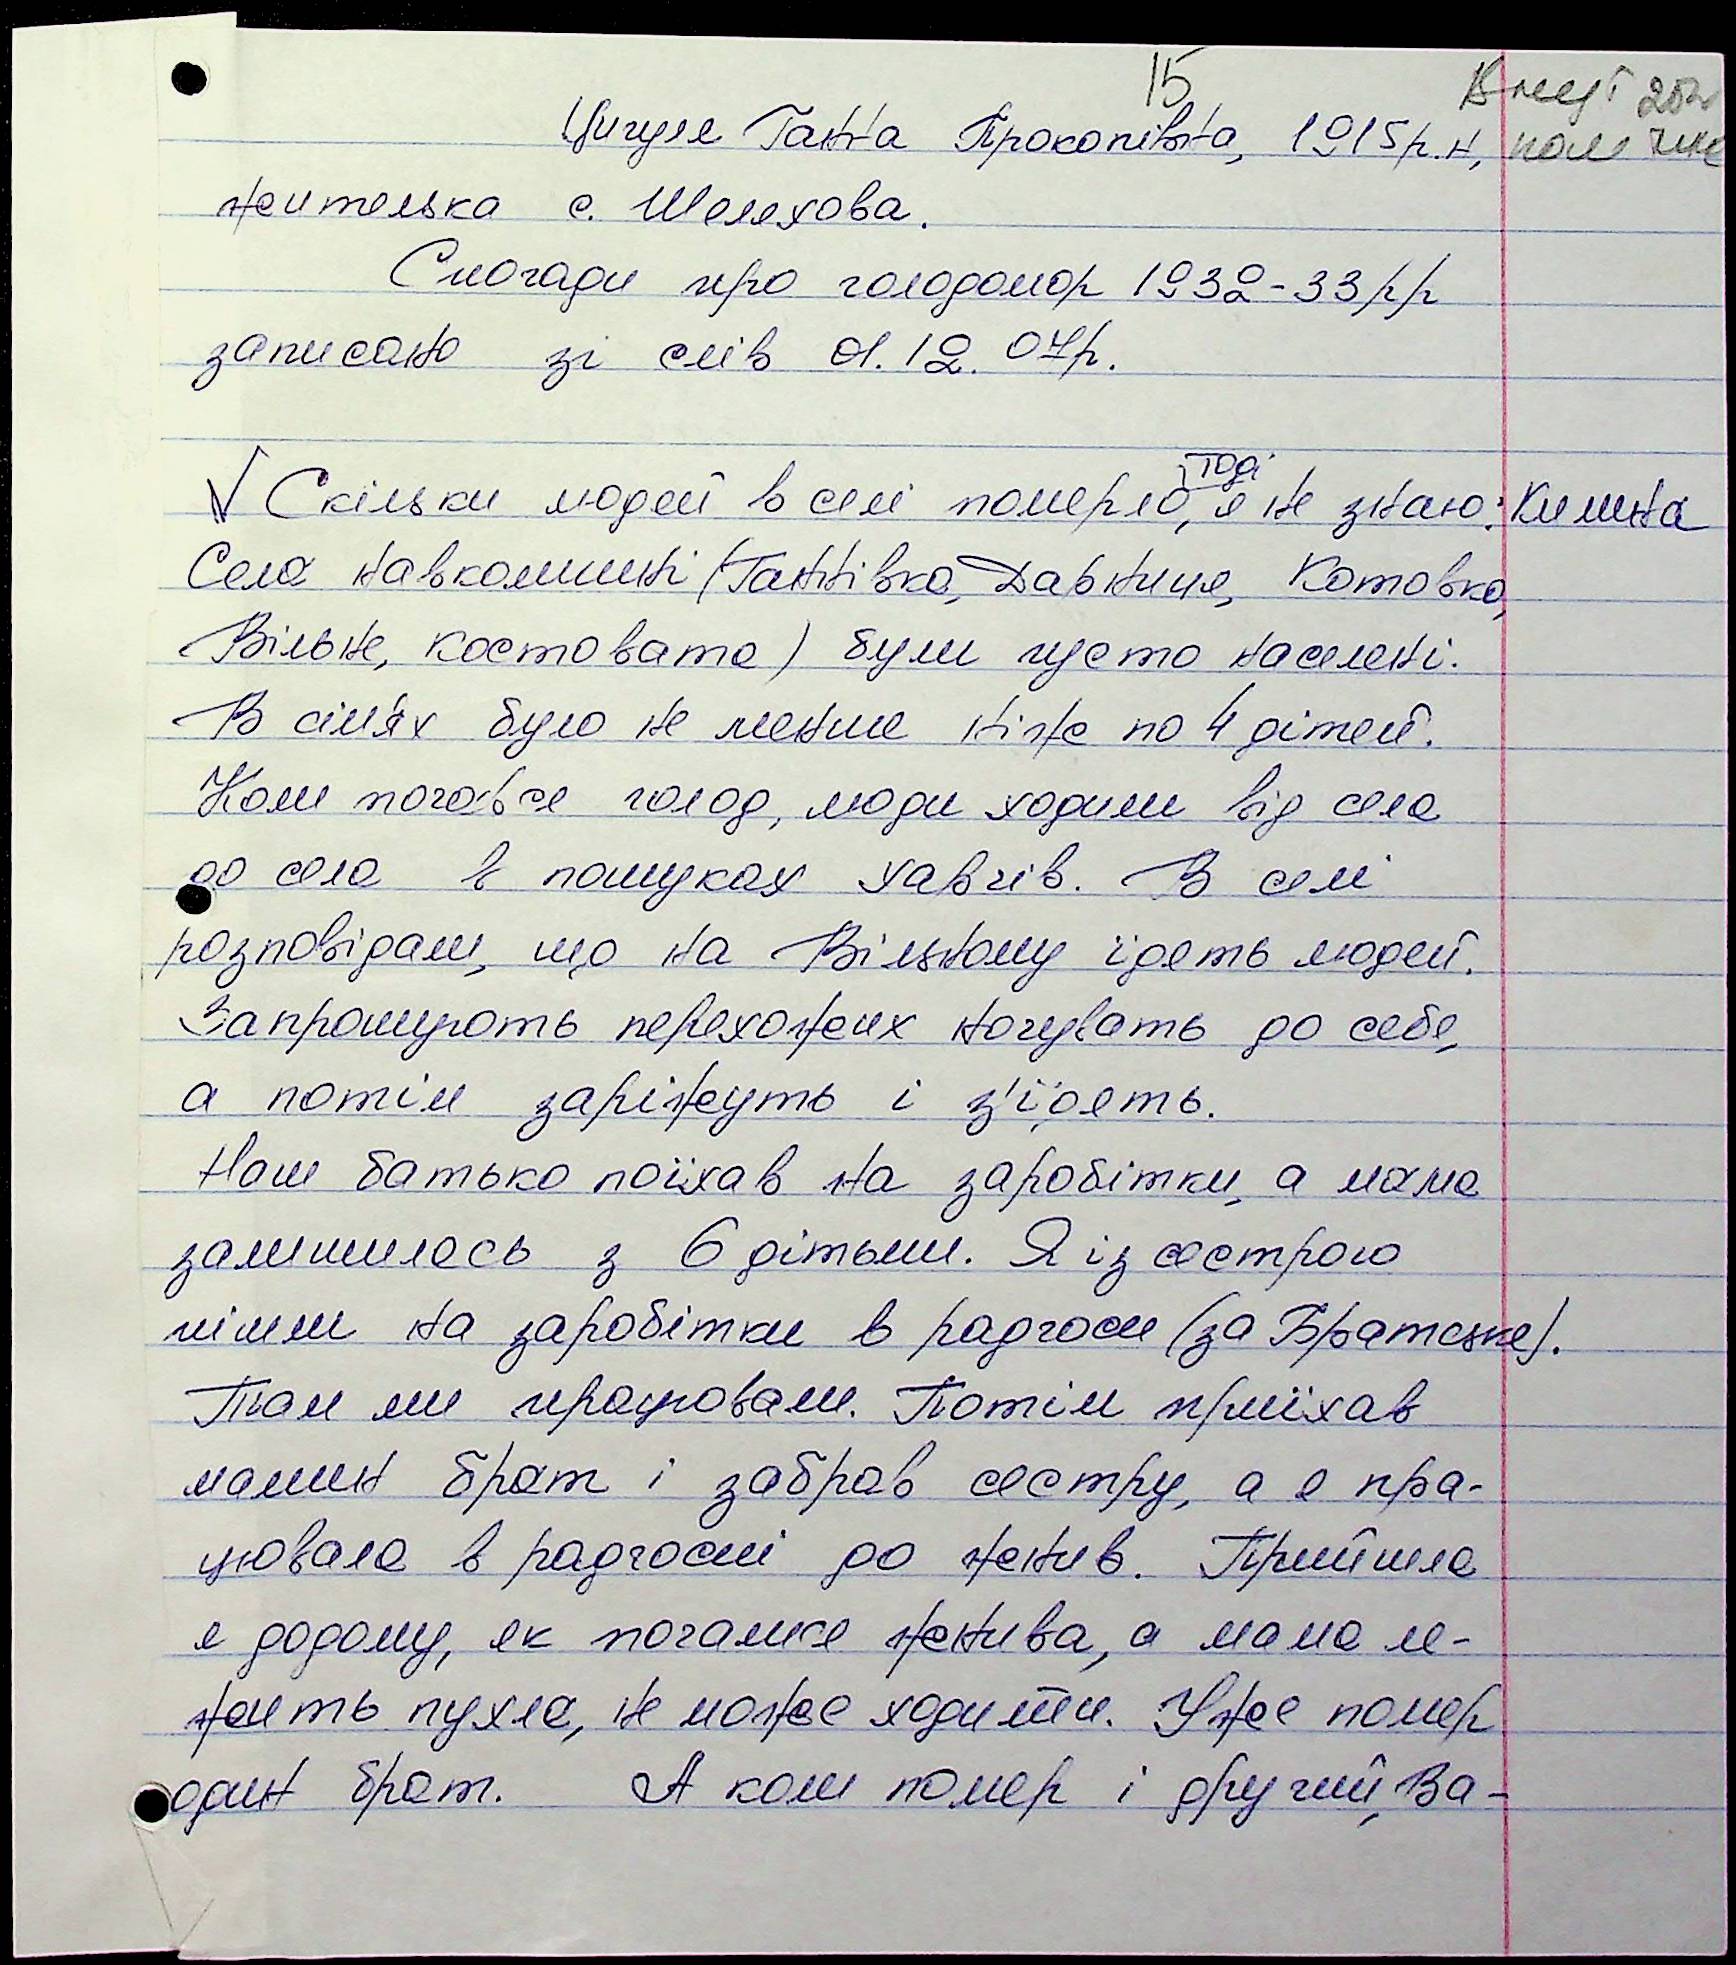 15
Цигуля Ганна Прокопівна, 1915р.н,
жителька с. Шелехова.
Спогади про голодомор 1932-33рр
записано зі слів 01.12.07р.
√ Скільки людей в селі померло, тоді я не знаю. Килина
Села навколишні (Ганнівка, Дарниця, Котовка,
Вільне, Костовата) були густо населені.
В сім'ях було не менше ніже по 4 дітей.
Коли почався голод, люди ходили від села
до села в пошуках харчів. В селі
розповідали, що на Вільному їдять людей.
Запрошують перехожих ночувать до себе,
а потім заріжуть і з'їдять.
Наш батько поїхав на заробітки, а мама
залишилась з 6 дітьми. Я із сестрою
пішли на заробітки в радгосп (за Братське).
Там ми працювали. Потім приїхав
мамин брат і забрав сестру, а я пра-
цювала в радгоспі до жнив. Прийшла
я додому, як почалися жнива, а мама ле-
жить пухла, не може ходити. Уже помер
один брат. А коли помер і другий, Ва-